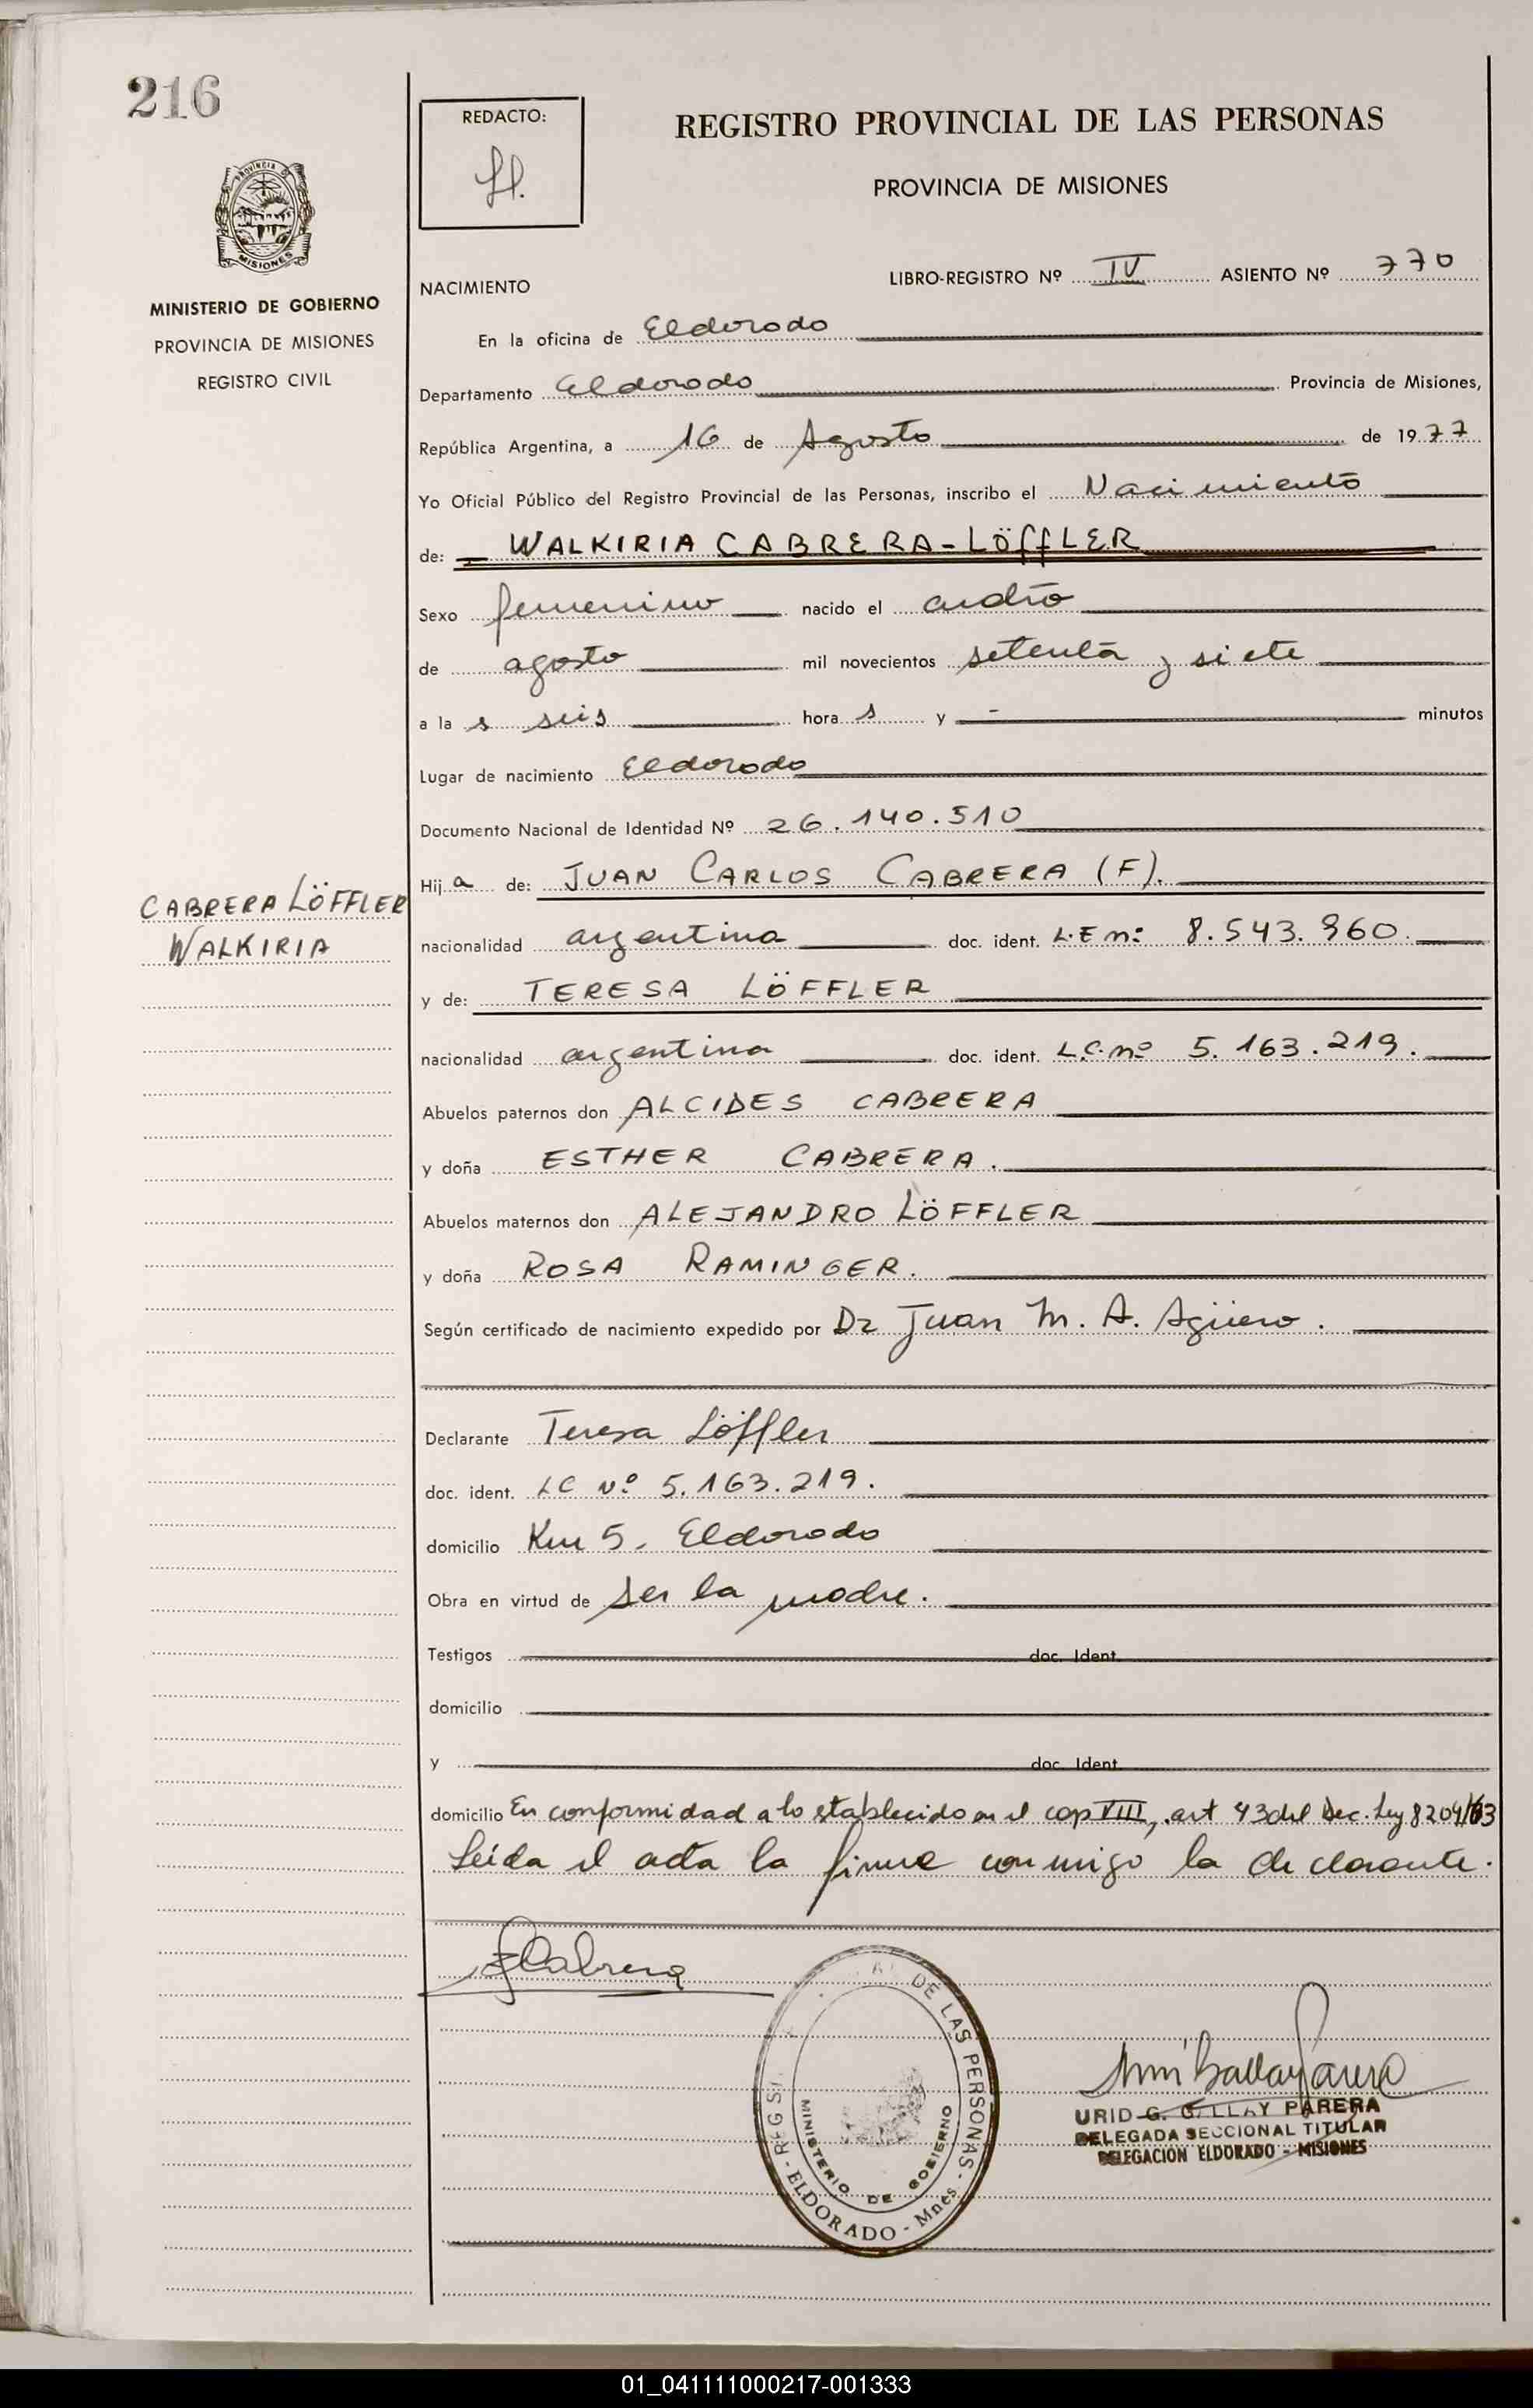 216
REDACTO:
REGISTRO PROVINCIAL DE LAS PERSONAS
PROVINCIA DE MISIONES
PROVINCIA DE
MISIONES
MINISTERIO DE GOBIERNO
PROVINCIA DE MISIONES
REGISTRO CIVIL
NACIMIENTO LIBRO-REGISTRO Nº IV ASIENTO Nº 770
En la oficina de Eldorado
Departamento Eldorado Provincia de Misiones,
República Argentina, a 16 de Agosto de 1977
Yo Oficial Público del Registro Provincial de las Personas, inscribo el Nacimiento
de: WALKIRIA CABRERA-LÖFFLER
Sexo femenino nacido el cuatro
de agosto mil novecientos setenta y siete
a la s seis hora s y - minutos
Lugar de nacimiento Eldorado
Documento Nacional de Identidad Nº 26.140.510
Hij a de: JUAN CARLOS CABRERA (F).
CABRERA LÖFFLER
WALKIRIA
nacionalidad argentina doc. ident. L.E nº 8.543.960.
y de: TERESA LÖFFLER
nacionalidad argentina doc. ident. L.C. nº 5.163.219.
Abuelos paternos don ALCIDES CABRERA
y doña ESTHER CABRERA.
Abuelos maternos don ALEJANDRO LÖFFLER
y doña ROSA RAMINGER.
Según certificado de nacimiento expedido por Dr Juan M. A. Agüero.
Declarante Teresa Löffler
doc. ident. LC Nº 5.163.219.
domicilio Km 5, Eldorado
Obra en virtud de ser la madre.
Testigos doc. Ident.
domicilio
y doc. Ident.
domicilio En conformidad a lo establecido en el cap VIII, art 43 del Dec. Ley 8204/63
Leída el acta la firma conmigo la declarante.
Cabrera
DE LAS PERSONAS - ELDORADO - Mnes.
MINISTERIO DE GOBIERNO
URID G. GALLAY PARERA
DELEGADA SECCIONAL TITULAR
DELEGACION ELDORADO - MISIONES
01_041111000217-001333